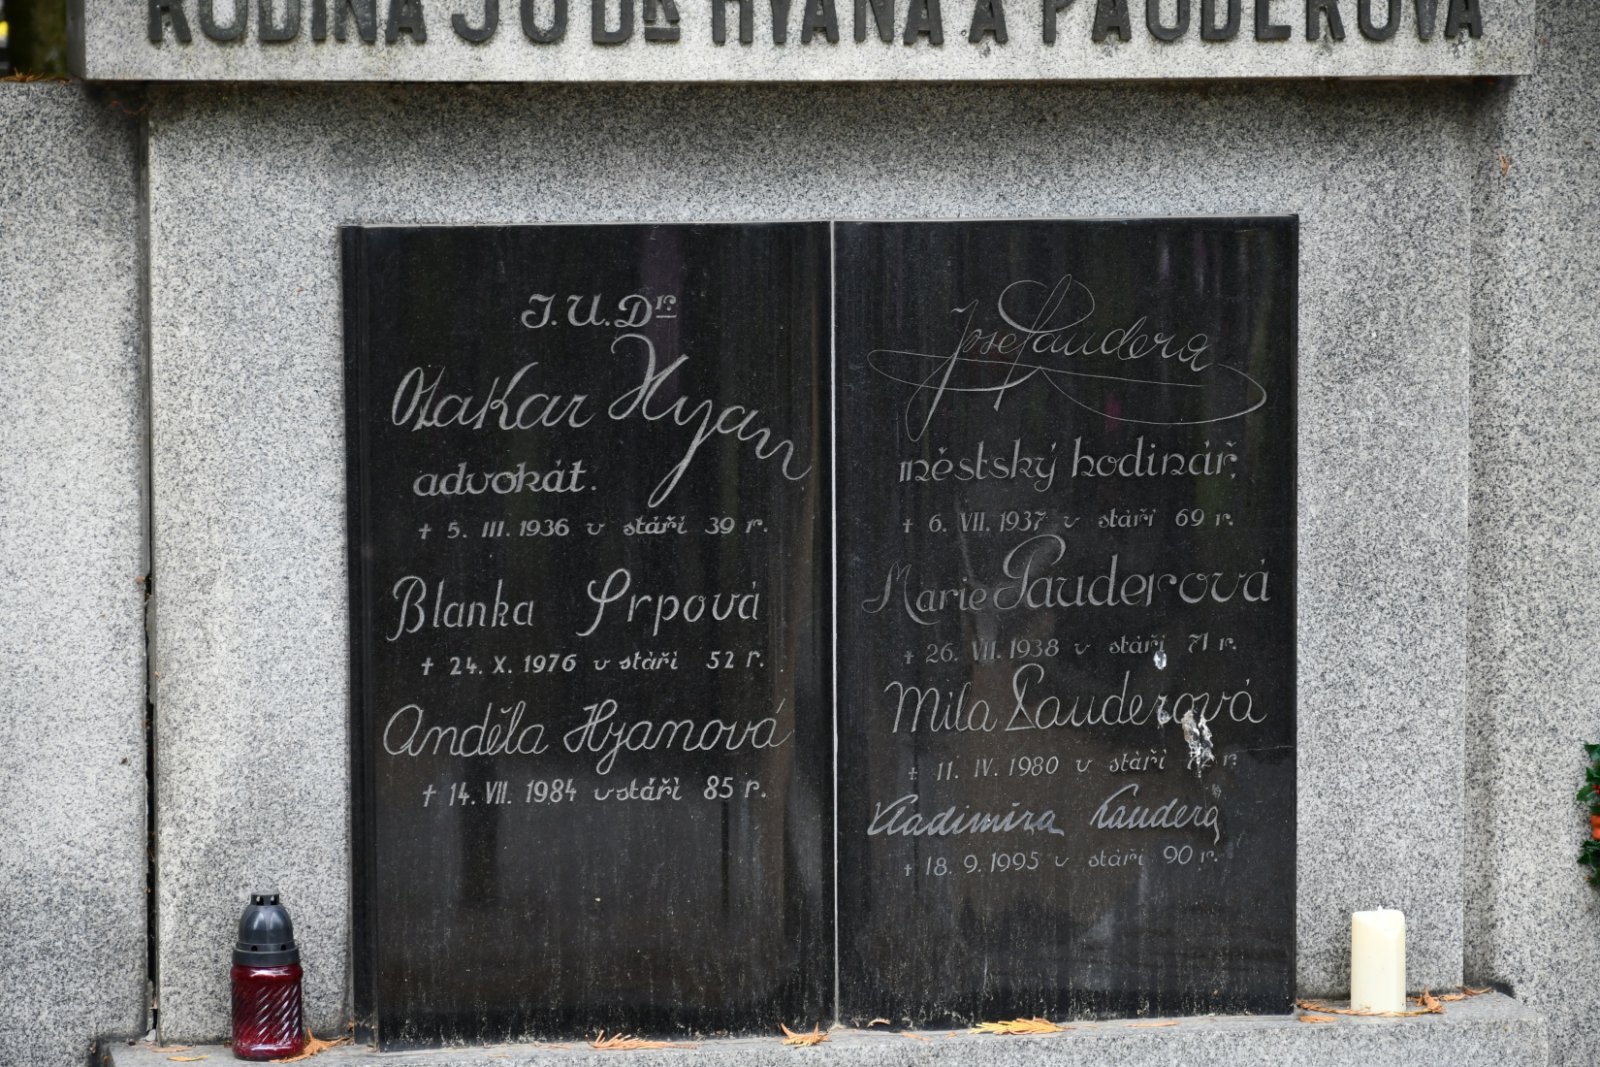 RODINA JUDR HYANA A PAUDEROVA
J.U.Dr.
Otakar Hyan
advokát.
† 5. III. 1936 v stáří 39 r.
Blanka Srpová
† 24. X. 1976 v stáří 52 r.
Anděla Hyanová
† 14. VII. 1984 v stáří 85 r.
Josef Paudera
městský hodinář,
† 6. VII. 1937 v stáří 69 r.
Marie Pauderová
† 26. VII. 1938 v stáří 71 r.
Mila Pauderová
† 11. IV. 1980 v stáří r.
Vladimíra Paudera
† 18. 9. 1995 v stáří 90 r.